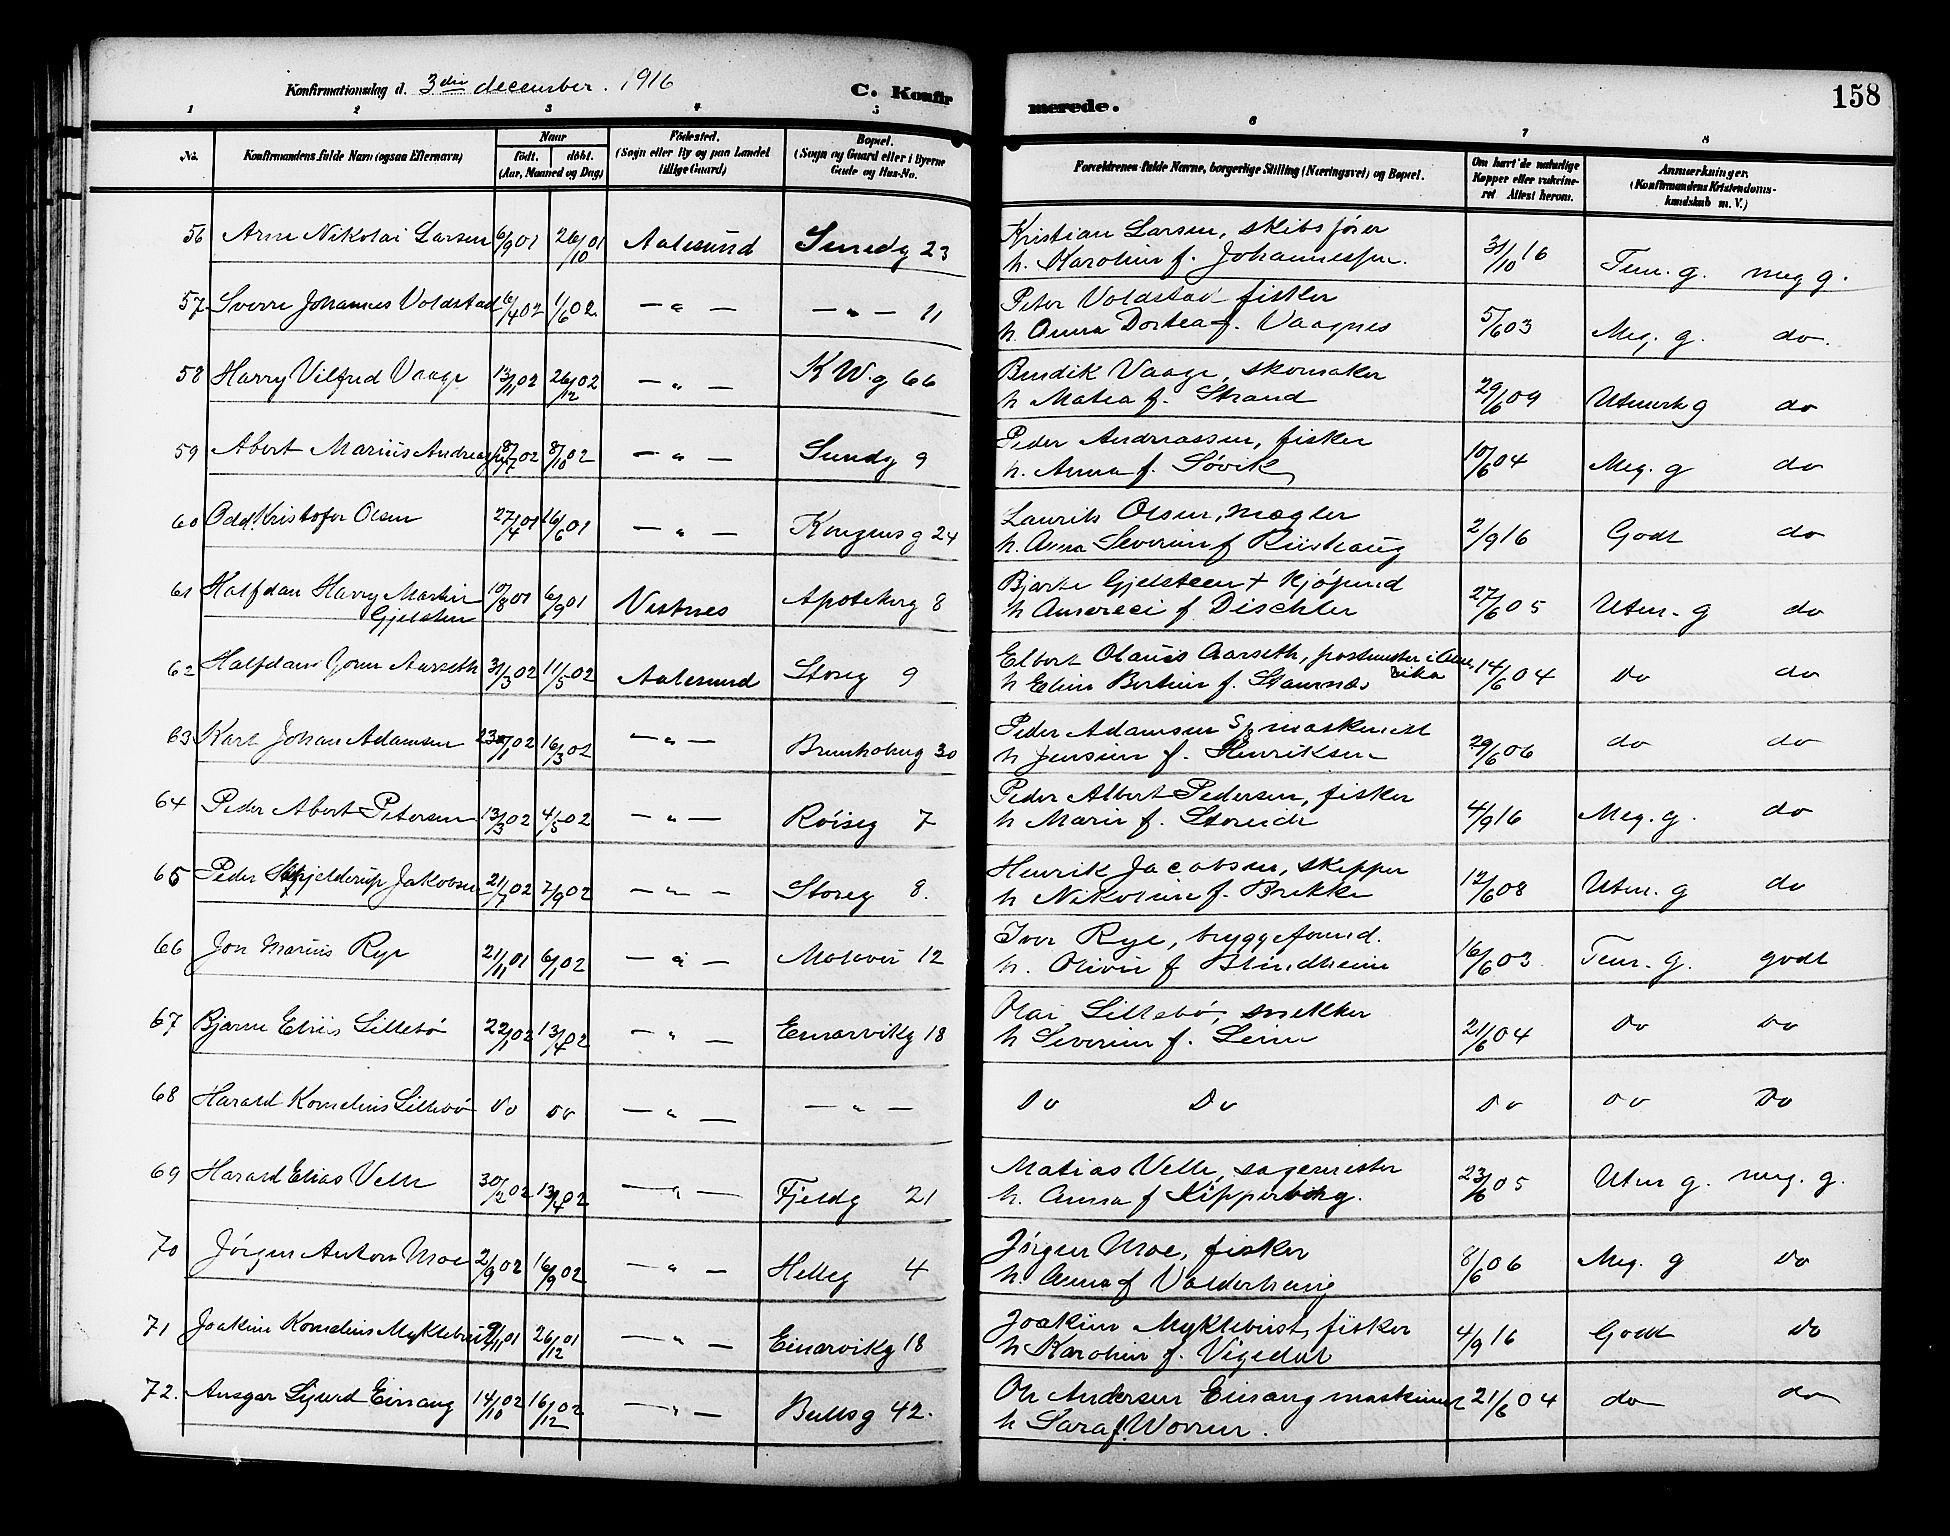 Konfirmationsdag d. 3die december. 1916
C. Konfirmerede.
158
1 2 3 4 5 6 7 8
No.
Konfirmandens fulde Navn (ogsaa Efternavn)
Naar
født. døbt.
(Aar, Maaned og Dag)
Fødested.
(Sogn eller By og paa Landet
tillige Gaard)
Bopæl.
(Sogn og Gaard eller i Byerne
Gade og Hus-No.
Forældrenes fulde Navne, borgerlige Stilling (Næringsvei) og Bopæl.
Om havt de naturlige
Kopper eller vakcineret. Attest herom.
Anmærkninger.
(Konfirmandens Kristendomskundskab m. V.)
56 Arne Nikolai Larsen 6/9 01 26/10 01 Aalesund Sundg 23 Kristian Larsen, skibsfører 31/10 16 Tem. g. meg g.
h. Karoline f. Johannessen.
57 Sverre Johannes Voldstad 6/4 02 1/6 02 — " — — " — 11 Peter Voldstad fisker 5/6 03 Meg. g. do.
h. Anna Dortea f. Vaagnes
58 Harry Vilfred Vaage 13/11 02 26/12 02 — " — K W. g 66 Bendik Vaage, skomaker 29/6 09 Utmerk g do
h Matea f. Strand
59 Abert Marius Andreassen 18/7 02 8/10 02 — " — Sundg 9 Peder Andreassen, fisker 10/6 04 Meg. g do
h. Anna f. Søvik
60 Odd Kristofer Olsen 27/4 01 16/6 01 — " — Kongens g 24 Laurits Olsen, mægler 2/9 16 Godt do
h. Anna Severine f Riishaug
61 Halfdan Harry Martin 10/8 01 6/9 01 Vestnes Apotekerg 8 Bjarke Gjelsteen + kjøpmd 27/6 05 Utm. g do
Gjelsten h f Dischler
62 Halfdan Gorm Aarseth 31/3 02 11/5 02 Aalesund Storg 9 Elbert Olaus Aarseth, postmester i Ame 14/6 04 Do do
rika
h Eline Bertine f. Stavnes
63 Karl Johan Adamsen 23/1 02 16/3 02 — " — Brunholmg 30 Peder Adamsen maskinist 29/6 06 do do
h Jensine f. Henriksen
64 Peder Abert Petersen 13/3 02 4/5 02 — " — Røiseg 7 Peder Albert Pedersen, fisker 4/9 16 Meg. g. do
h Maren f. Storeide
65 Peder Skjelderup Jakobsen 21/7 02 7/9 02 — " — Storg 8. Henrik Jacobsen, skipper 12/6 08 Utm. g do
h Nikoline f. Brekke
66 Jon Marius Rye 21/11 01 6/1 02 — " — Molovei 12 Iver Rye, bryggeformd. 16/6 03. Tem. g. godt
h. Olivie f Blindheim
67 Bjarne Eliis Lillebø 22/1 02 13/4 02 — " — Einarvikg 18 Olai Lillebø, snekker 21/6 04 Do Do
h Severine f. Leine
68 Harald Kornelius Lillebø Do Do — " — — " — Do Do Do Do Do
69 Harald Elias Velle 30/2 02 13/4 02 — " — Fjeldg 21 Matias Velle, sagmester 23/6 05 Utm g. meg. g.
h. Anna f Kipperberg.
70 Jørgen Anton Moe 2/9 02 16/9 02 — " — Helleg 4 Jørgen Moe, fisker 8/6 06 Meg. g Do
h. Anna f Valderhaug
71 Joakim Kornelius Myklebust 9/11 01 26/12 01 — " — Einarvikg 18 Joakim Myklebust, fisker 4/9 16 Godt Do
h Karoline f. Vigedal
72. Ansgar Sigurd Einsang 14/10 02 16/12 02 — " — Bullsg 42. Ole Andersen Einsang maskinist 21/6 04 do do
h Sara f.